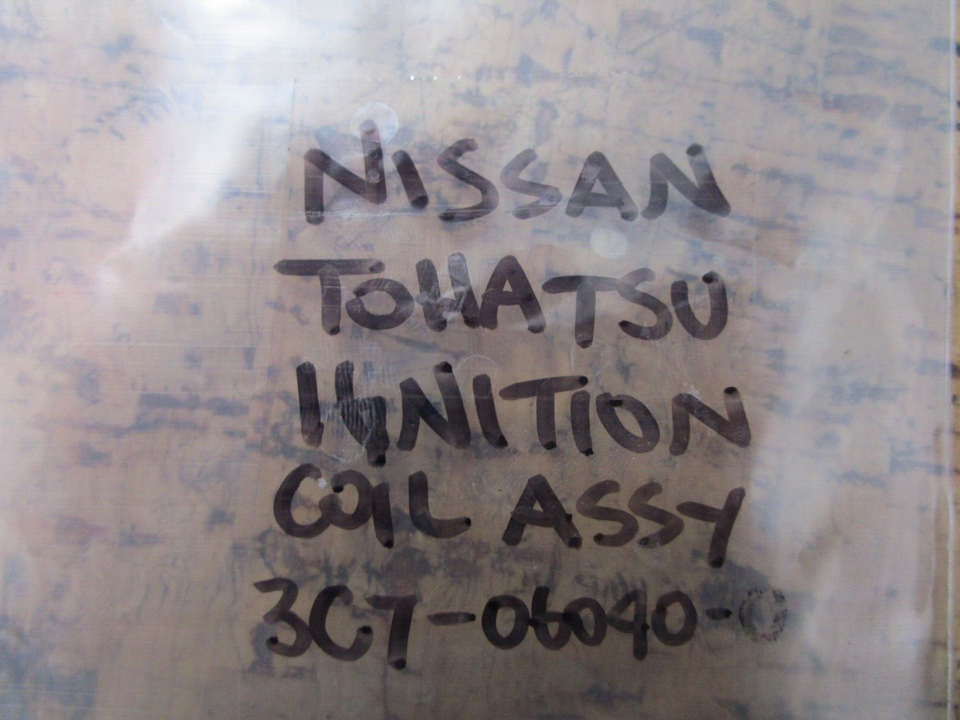 NISSAN
TOHATSU
IGNITION
COIL ASSY
3C7-06040-0